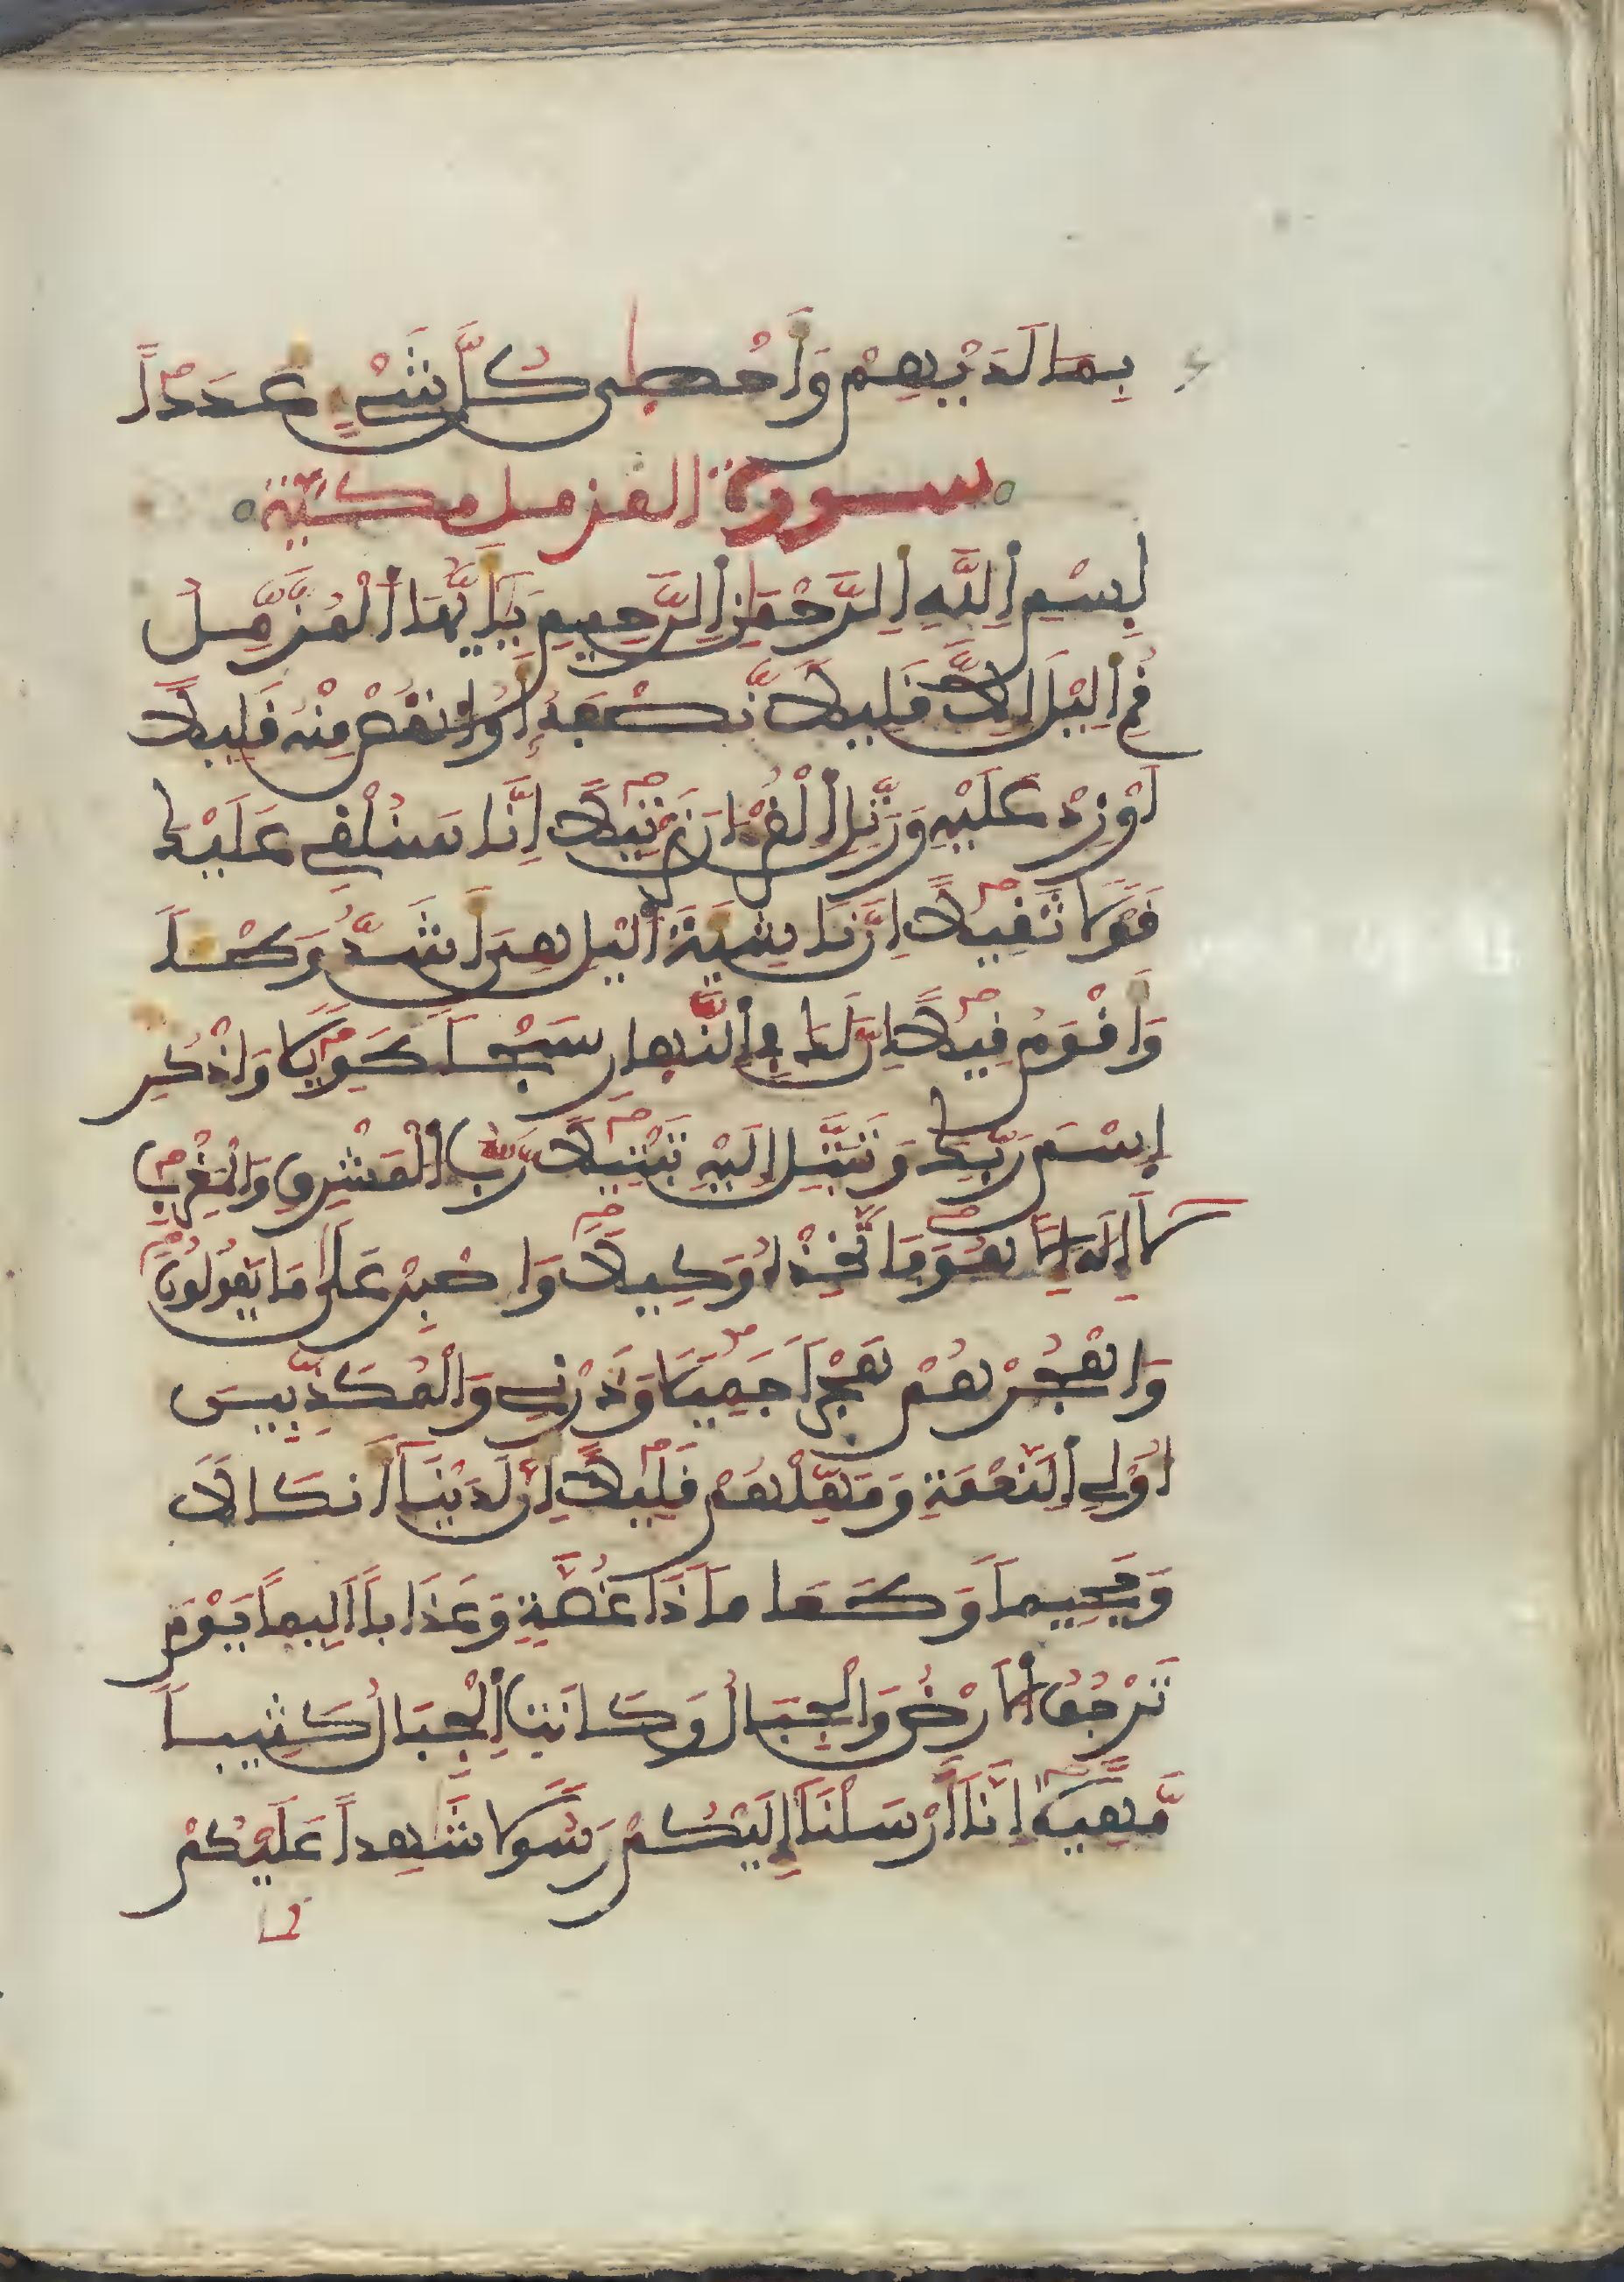 بِمَا لَدَيْهِمْ وَأَحْصَى كُلَّ شَيْءٍ عَدَداً
سورة المزمل مكية
بِسْمِ اِللَّهِ اِلرَّحْمَنِ اِلرَّحِيمِ يَأَيُّهَا اَلْمُزَّمِّلُ
قُمِ اِليْلَ إِلاَّ قَلِيلاً نِّصْفَهُ أَوُ اِنقُصْ مِنْهُ قَلِيلاً
اَوْ زِدْ عَلَيْهِ وَرَتِّلِ اِلْقُرْءَانَ تَرْتِيلاً اِنَّا سَنُلْقِي عَلَيْكَ
قَوْلاً ثَقِيلاً اِنَّ نَاشِيَةَ اَليْلِ هِيَ أَشَدُّ وَطْـاً
وَأَقْوَمُ قِيلاً اِنَّ لَكَ فِي اِلنَّهَارِ سَبْحاً طَوِيلاً وَاذْكُرِ
اِسْمَ رَبِّكَ وَتَبَتَّلِ الَيْهِ تَبْتِيلاً رَّبُّ اُلْمَشْرِقِ وَالْمَغْرِبِ
لاَ إِلَهَ إِلاَّ هُوَ فَاتَّخِذْهُ وَكِيلاً وَاصْبِرْ عَلَى مَا يَقُولُونَ
وَاهْجُرْهُمْ هَجْراً جَمِيلاً وَذَرْنِي وَالْمُكَذِّبِينَ
أُوْلِي اِلنَّعْمَةِ وَمَهِّلْهُمْ قَلِيلاً اِنَّ لَدَيْنَا أَنكَالاً
وَجَحِيماً وَطَعَاماً ذَا غُصَّةٍ وَعَذَاباً اَلِيماً يَوْمَ
تَرْجُفُ اُلاَرْضُ وَالْجِبَالُ وَكَانَتِ اِلْجِبَالُ كَثِيباً
مَّهِيلاً اِنَّا أَرْسَلْنَا إِلَيْكُمْ رَسُولاً شَهِداً عَلَيْكُمْ